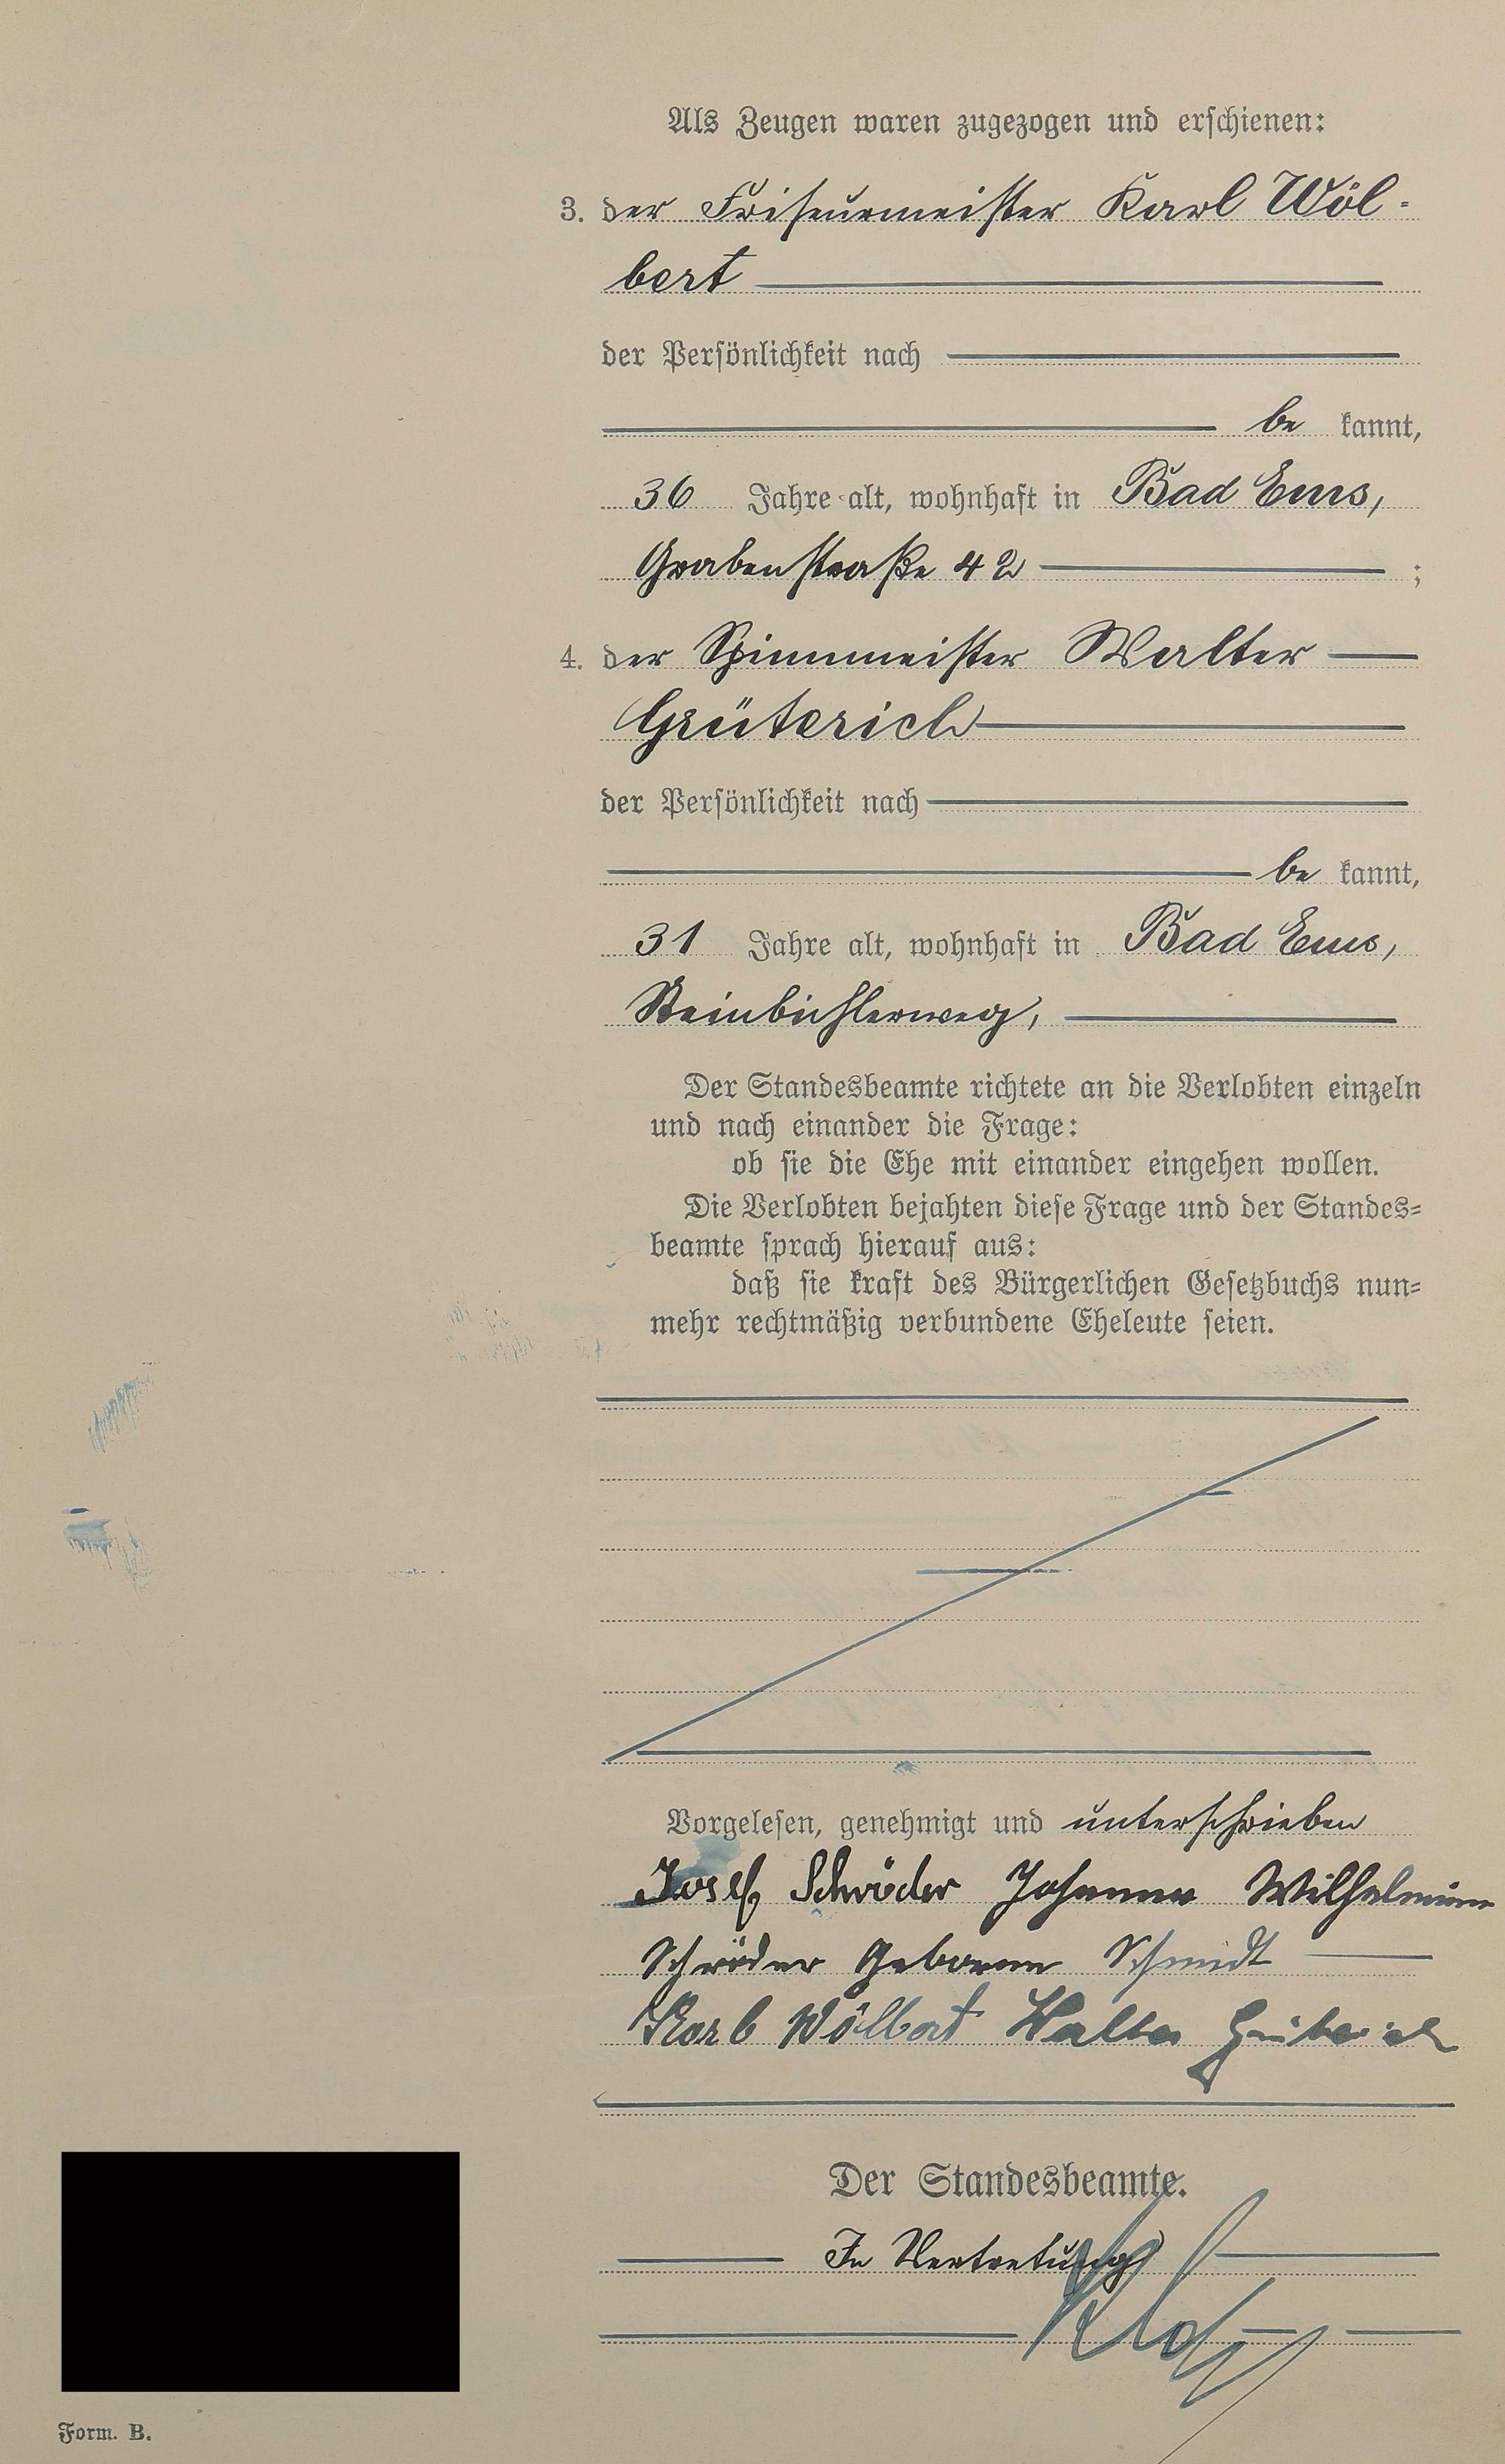 Als Zeugen waren zugezogen und erschienen:
3. der Friseurmeister Karl Wöl-
bert
der Persönlichkeit nach
be kannt,
36 Jahre alt, wohnhaft in Bad Ems,
Grabenstraße 42 ;
4. der Spinnmeister Walter
Grüterich
der Persönlichkeit nach
be kannt,
31 Jahre alt, wohnhaft in Bad Ems,
Der Standesbeamte richtete an die Verlobten einzeln
und nach einander die Frage:
ob sie die Ehe mit einander eingehen wollen.
Die Verlobten bejahten diese Frage und der Standes-
beamte sprach hierauf aus:
daß sie kraft des Bürgerlichen Gesetzbuchs nun-
mehr rechtmäßig verbundene Eheleute seien.
Vorgelesen, genehmigt und unterschrieben
Josef Schröder Johanna Wilhelmine
Schröder Geborene Schmidt
Karl Wölbert Walter Grüterich
Der Standesbeamte.
In Vertretung
Form. B.